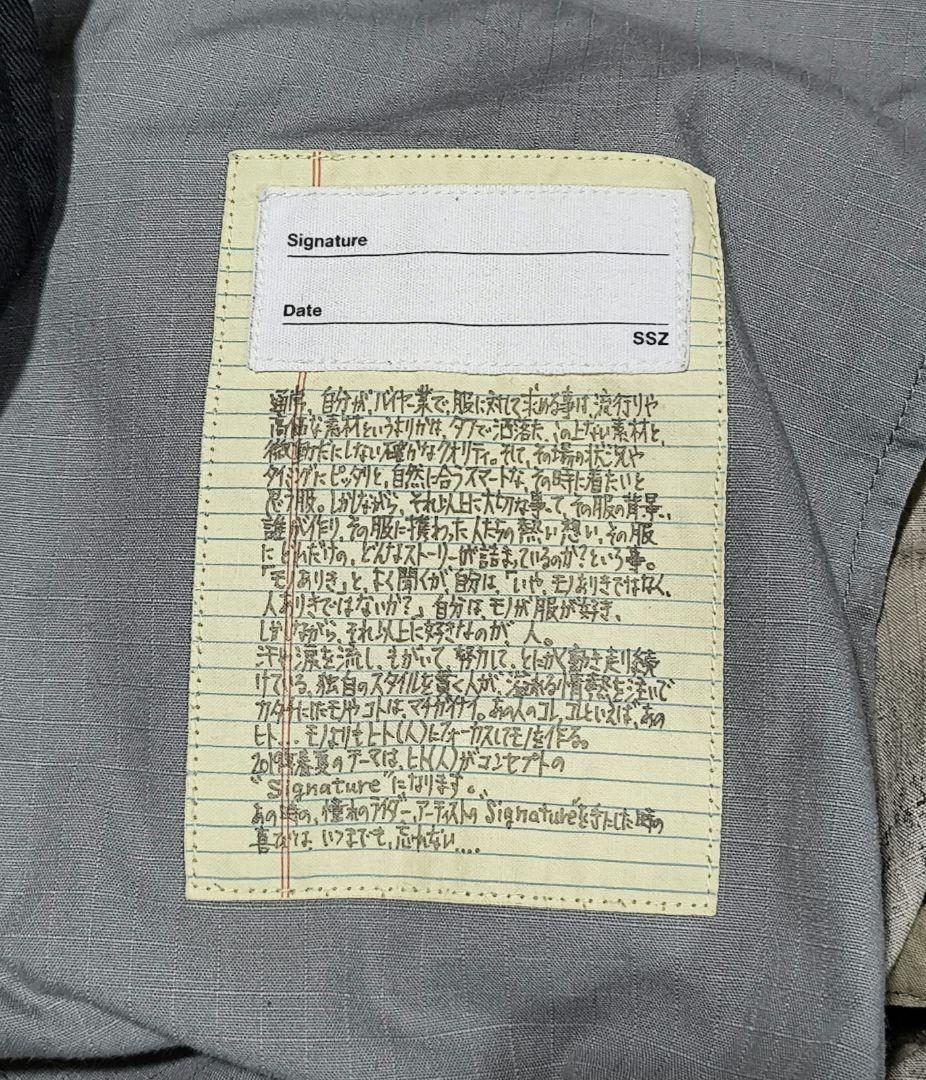 Signature
Date
SSZ
通常、自分が、バイヤー業で、服に対して求める事は、流行りや
高価な素材というよりかは、タフで洒落た、この上ない素材と、
微動だにしない確かなクオリティ。そして、その場の状況や
タイミングにピッタリと、自然に合うスマートな、その時に着たいと
思う服。しかしながら、それ以上に大切な事って、その服の背景、、
誰が作り、その服に携わった人たちの熱い想い、その服
に どんだけの、どんなストーリーが詰まっているのか?という事。
「モノありき」と、よく聞くが 自分は、「いや、モノありきではなく、
人ありきではないか?」自分は、モノが服が好き、
しかしながら、それ以上に好きなのが 人。
汗や涙を流し、もがいて、努力して、とにかく動き走り続
けている、独自のスタイルを貫く人が、溢れる情熱を注いで
カタチにしたモノやコトは、マチガイナイ。あの人のコレ、コレといえば、あの
ヒト、、モノよりもヒト(人)にフォーカスしてモノを作る。
2019年春夏のテーマは、ヒト(人)がコンセプトの
"Signature"になります。、
あの時の、憧れのライダー、アーティストの Signature"を手にした時の
喜びは、いつまでも、忘れない....